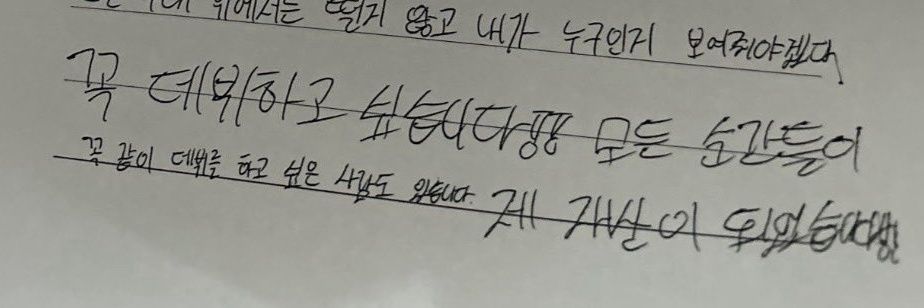 위에서는 떨지 않고 내가 누구인지 보여줘야겠다
꼭 데뷔하고 싶습니다 모든 순간들이
꼭 같이 데뷔를 하고 싶은 사람도 있습니다.
제 개산이 되었습니다